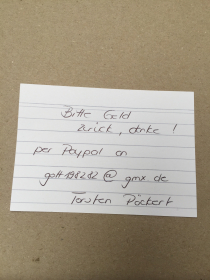 Bitte Geld
zurück, danke!
per Paypal an
@ gmx.de
Torsten